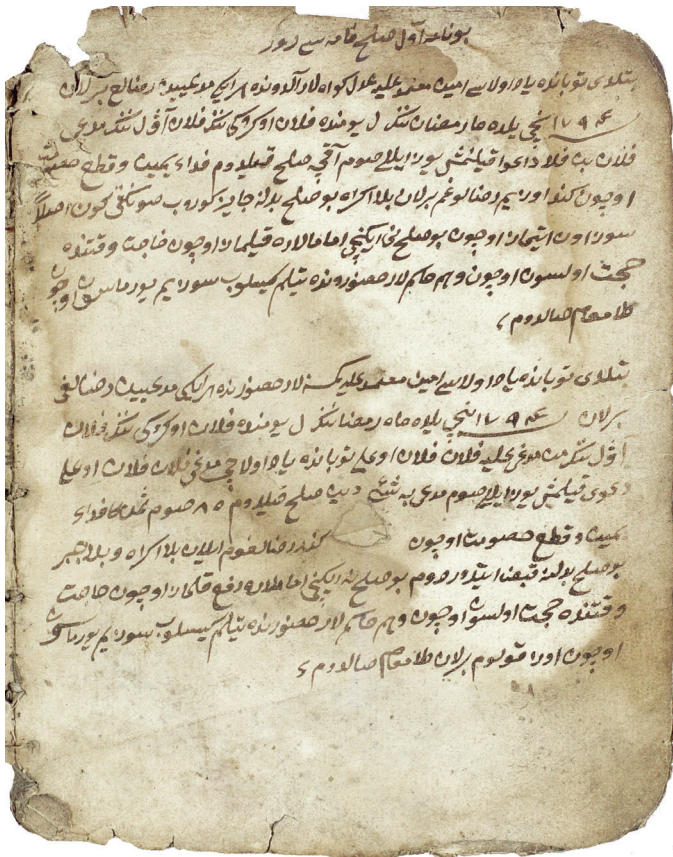 بو نامه اول صلح نامه سی دور
بتلدی توبانده یاد اولاسی امین معتمد علیه عدل کواه لار آلدونده هر ایکی مدعیین رضالغ برلان
۱۷۹۴ نچی یلده ماه رمضان ننک ل یومنده فلان اوکروکی ننک فلان آؤل ننک مدعی
فلان بن فلان داعوا قیلنمش یوز ایللی صوم آقچه صلح قیلدوم فداء یمین و قطع خصومت
اوچون کندو اوزیم رضالوغم برلان بلا اکراه بو صلح بدلن جایز کوروب صونکغی کون اصلاً
سوز اون ایتماز اوچون بو صلح نی ایکنچی امامالاره قیلماز اوچون حاجت وقتنده
حجت اولسون اوچون و هم حاکم لار حضورونده تیلم کیسلوب سوزیم یورماسون اوچون
طامغام صالدوم
بتلدی توبانده یاد اولاسی امین معتمد علیه کمسنه لار حضورنده هر ایکی مدعیین رضالغی
برلان ۱۷۹۴ نچی یلده ماه رمضان ننک ل یومنده فلان اوکروکی ننک فلان
آؤل ننک من مدعی علیه فلان فلان اوغلی توبانده یاد اولاچی مدعی فلان فلان اوغلی
دعوی قیلمش یوز ایللی صوم مدعی به شئ دین صلح قیلدوم ۸۵ صوم فداء
یمین و قطع خصومت اوچون کندو رضالغوم ایلان بلا اکراه و بلا جبر
بو صلح بدلن قبض ایتدوردوم بو صلح نه ایکنچی امامالارنه رفع قلماز اوچون حاجت
وقتنده حجت اولسون اوچون و هم حاکم لار حضورنده تیلم کیسلوب سوزیم یورماسون
اوچون اوز قولوم برلان طامغام صالدوم